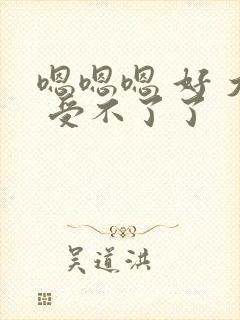 嗯嗯嗯 好大
受不了了
吴道洪